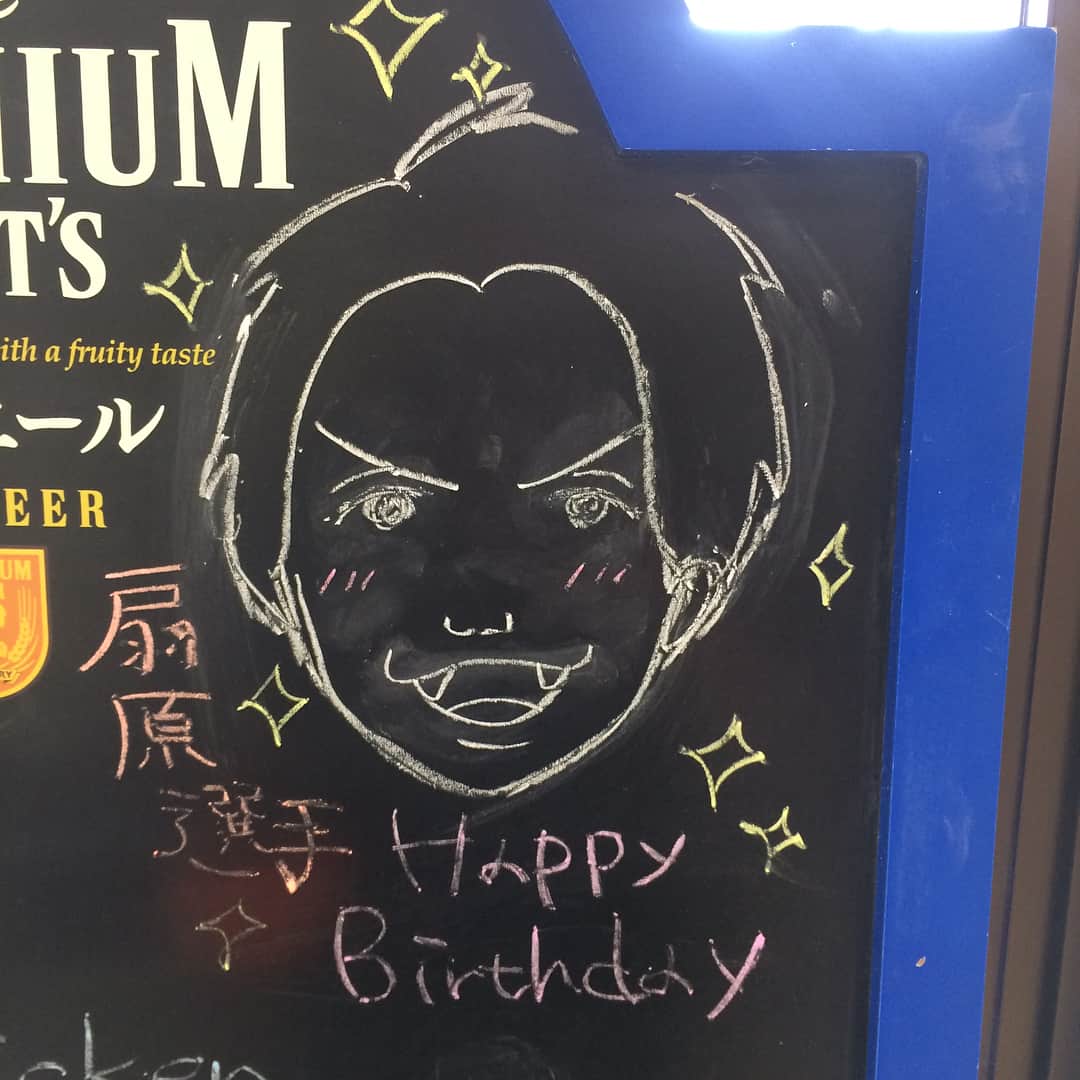 NIUM
T'S
ith a fruity taste
エール
BEER
UM
扇原
選手
Happy
Birthday
icken